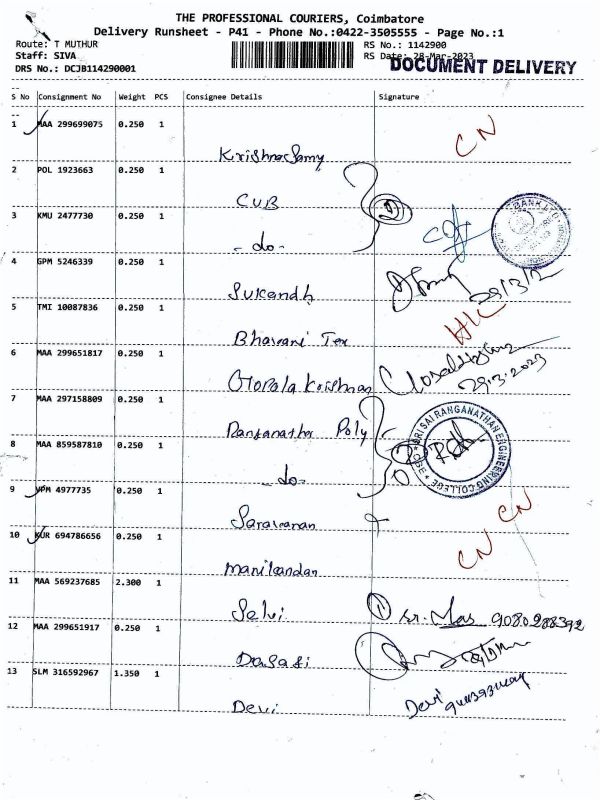 THE PROFESSIONAL COURIERS, Coimbatore
Delivery Runsheet - P41 - Phone No.:0422-3505555 - Page No.:1
Route: T MUTHUR RS No.: 1142900
Staff: SIVA RS Date: 28-Mar-2023
DRS No.: DCJB114290001 DOCUMENT DELIVERY
S No Consignment No Weight PCS Consignee Details Signature
1 MAA 299699075 0.250 1
CN
Krishnasamy
2 POL 1923663 0.250 1
CUB
3 KMU 2477730 0.250 1
BANK LTD
- do -
4 GPM 5246339 0.250 1
Sukandh
5 TMI 10087836 0.250 1
Bhavani Tex
6 MAA 299651817 0.250 1
Gopala Krishnan
29.3.2023
7 MAA 297158809 0.250 1
Ranganatha Poly
SRI SAI RANGANATHAN ENGINEERING COLLEGE
8 MAA 859587810 0.250 1
- do -
9 VPM 4977735 0.250 1
Saravanan
CN
10 KUR 694786656 0.250 1
CN
Manikandan
11 MAA 569237685 2.300 1
Selvi
9080288392
12 MAA 299651917 0.250 1
13 SLM 316592967 1.350 1
Devi
Devi